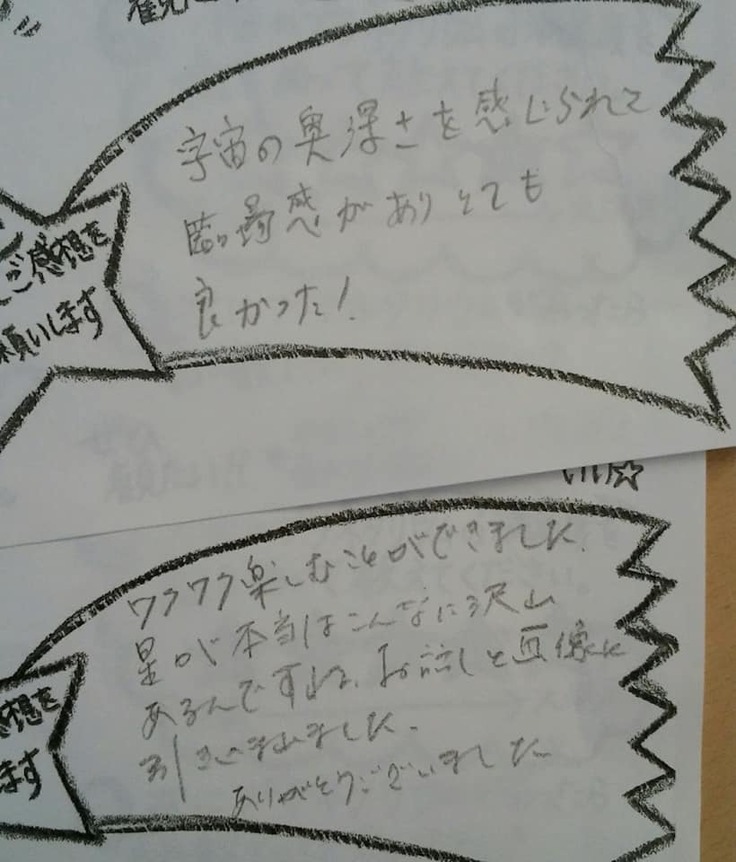 宇宙の奥深さを感じられて
臨場感がありとても
良かった!
ご感想を
願いします
いい☆
ワクワク楽しむことができました。
星が本当はこんなに沢山
あるんですね。お話しと画像に
引きこまれました。
ありがとうございました
感想を
ます